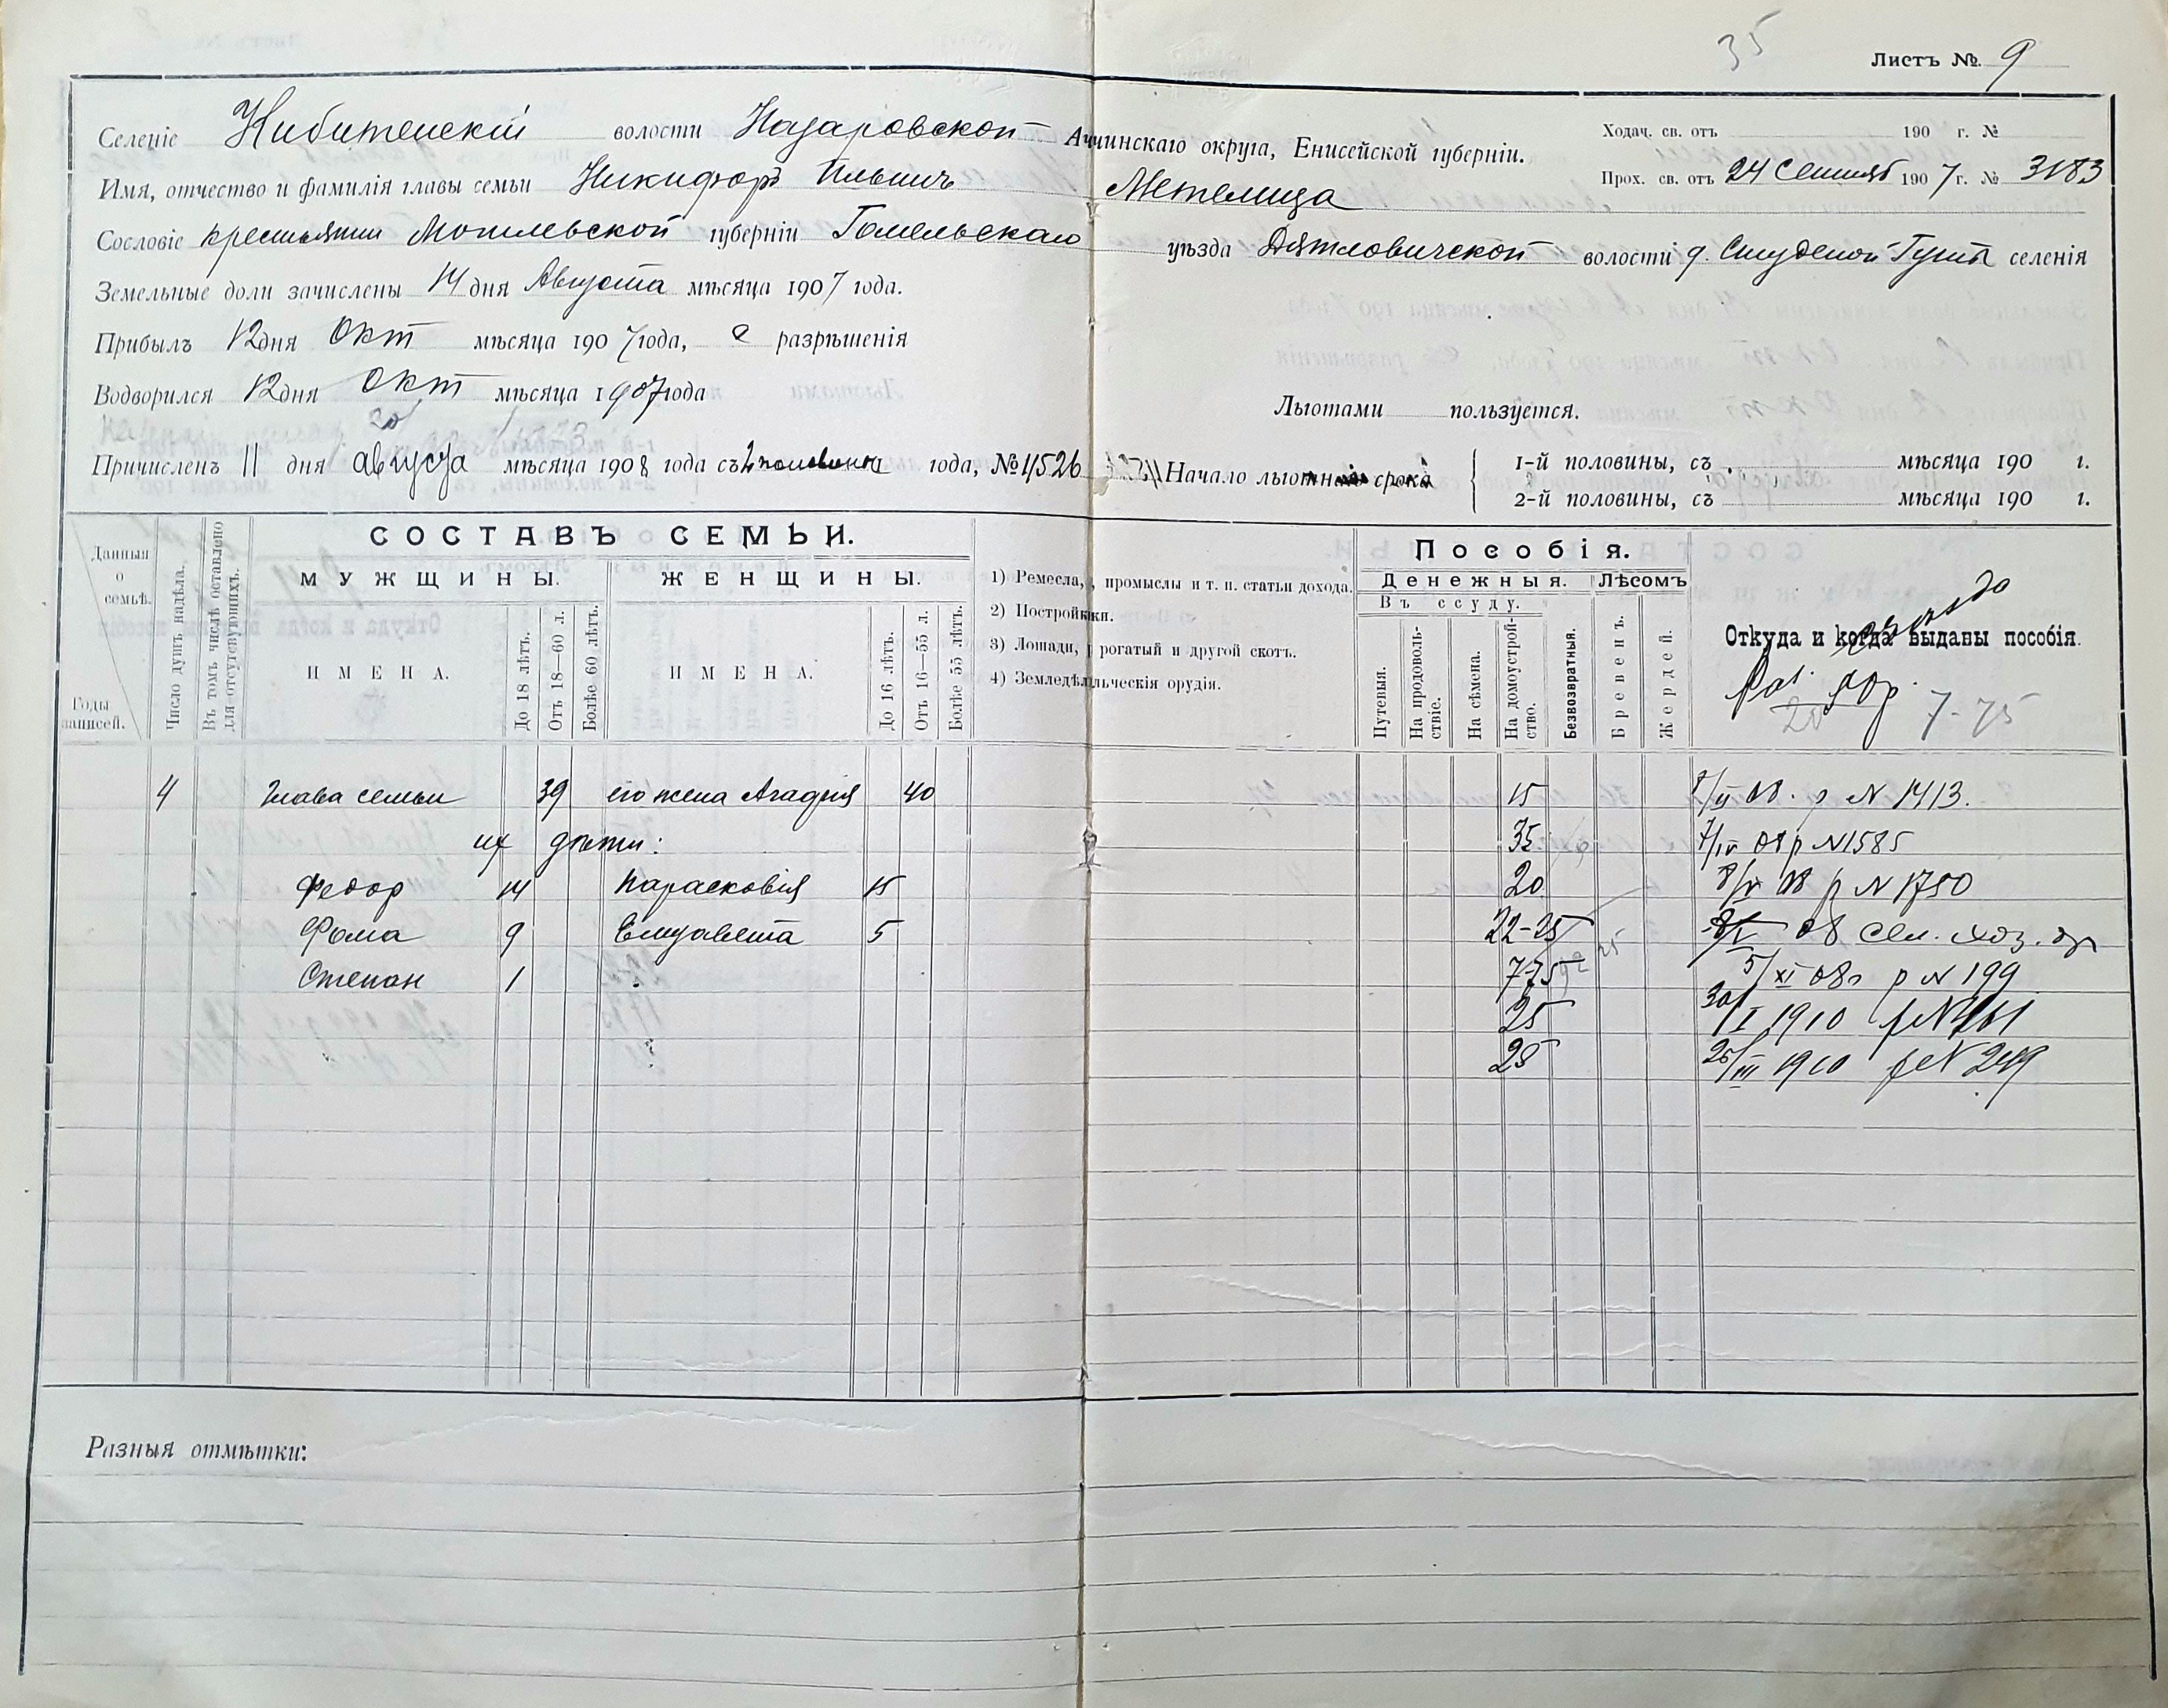 35
Листъ №. 9
Селеніе Кибитенскій волости Назаровской Ачинскаго округа, Енисейской губерніи.
Ходач. св. отъ 190 г. №
Имя, отчество и фамилія главы семьи Никифоръ Ильичъ Метелица
Прох. св. отъ 24 Сентяб 1907 г. № 3183
Сословіе крестьянин Могилевской губерніи Гомельскаго уѣзда Дятловичской волости д. Студеной Гуты селенія
Земельные доли зачислены 14 дня Августа мѣсяца 1907 года.
Прибылъ 12 дня Окт мѣсяца 1907 года, с разрѣшенія
Водворился 12 дня Окт мѣсяца 1907 года
Льготами пользуется.
Причисленъ 11 дня августа мѣсяца 1908 года съ 2 половины года, № 4526
Начало льготнаго срока
1-й половины, съ мѣсяца 190 г.
2-й половины, съ мѣсяца 190 г.
Данныя о семьѣ.
Годы записей.
Число душъ надѣла.
Въ томъ числѣ оставлено для отсутствующихъ.
СОСТАВЪ СЕМЬИ.
МУЖЩИНЫ.
ЖЕНЩИНЫ.
ИМЕНА.
До 18 лѣтъ.
Отъ 18—60 л.
Болѣе 60 лѣтъ.
ИМЕНА.
До 16 лѣтъ.
Отъ 16—55 л.
Болѣе 55 лѣтъ.
1) Ремесла, промыслы и т. п. статьи дохода.
2) Постройки.
3) Лошади, рогатый и другой скотъ.
4) Земледѣльческія орудія.
Пособія.
Денежныя.
Лѣсомъ
Въ ссуду.
Путевыя.
На продовольствіе.
На сѣмена.
На домоустройство.
Безвозвратныя.
Бревенъ.
Жердей.
Откуда и когда выданы пособія.
7-75
4 Глава семьи 39 его жена Агафия 40 15 08. р N 1413.
их дѣти: 35 7/IV 08 р N 1585
Федор 14 Парасковія 15 20 8/V 08 р N 1750
Фома 9 Елизавета 5 22-25 8/V 08 сел. хоз. ор
Степан 1 7-75 5/XI 08 р N 199
25 30/I 1910 р N 161
25 26/III 1910 р N 249
Разныя отмѣтки: